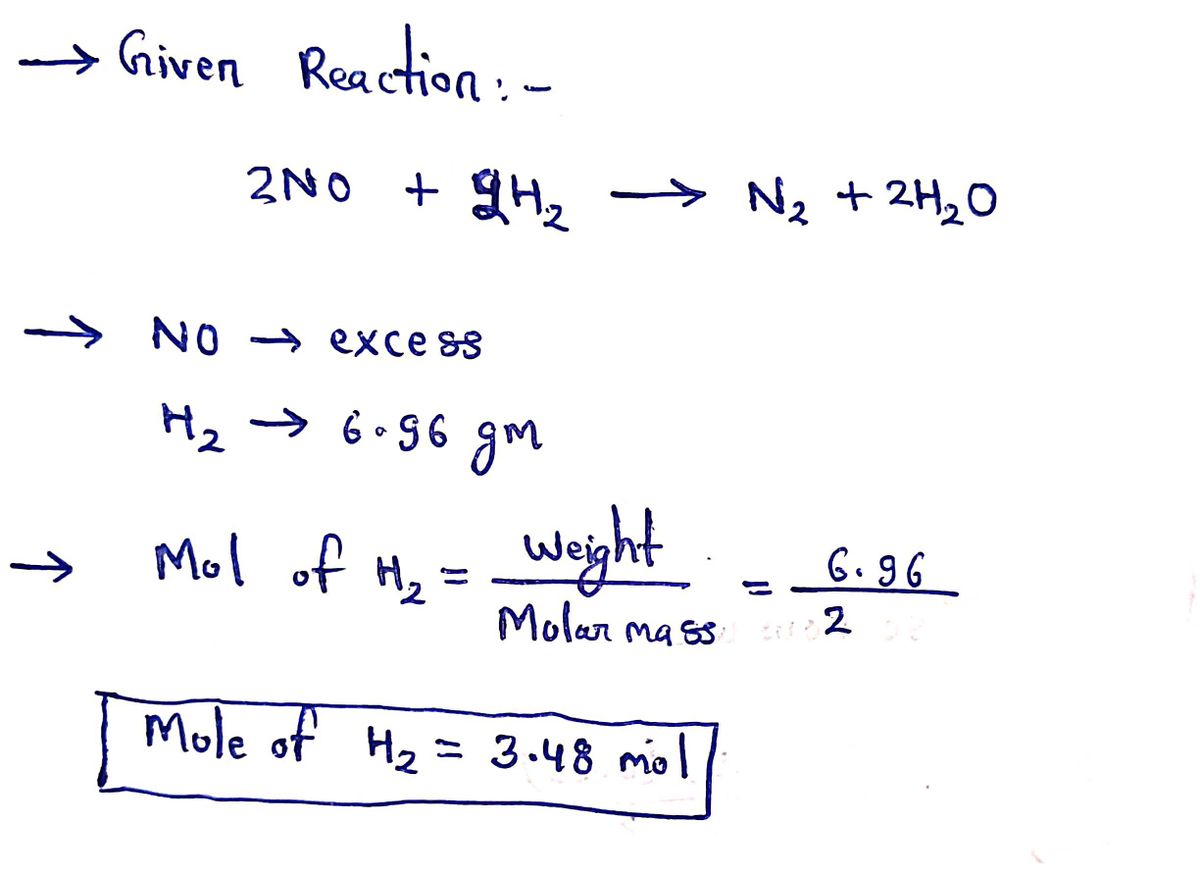 → Given Reaction :-
2NO + 2H₂ → N₂ + 2H₂O
→ NO → excess
H₂ → 6.96 gm
→ Mol of H₂ = Weight / Molar mass = 6.96 / 2
Mole of H₂ = 3.48 mol